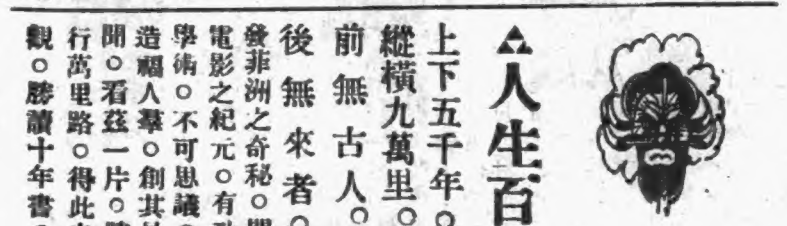 ▲人生百
上下五千年。
縱橫九萬里。
前無古人。
後無來者。
發菲洲之奇秘。開
電影之紀元。有
學術。不可思議。
造福人羣。創其
聞。看茲一片。勝
行萬里路。得此
觀。勝讀十年書。